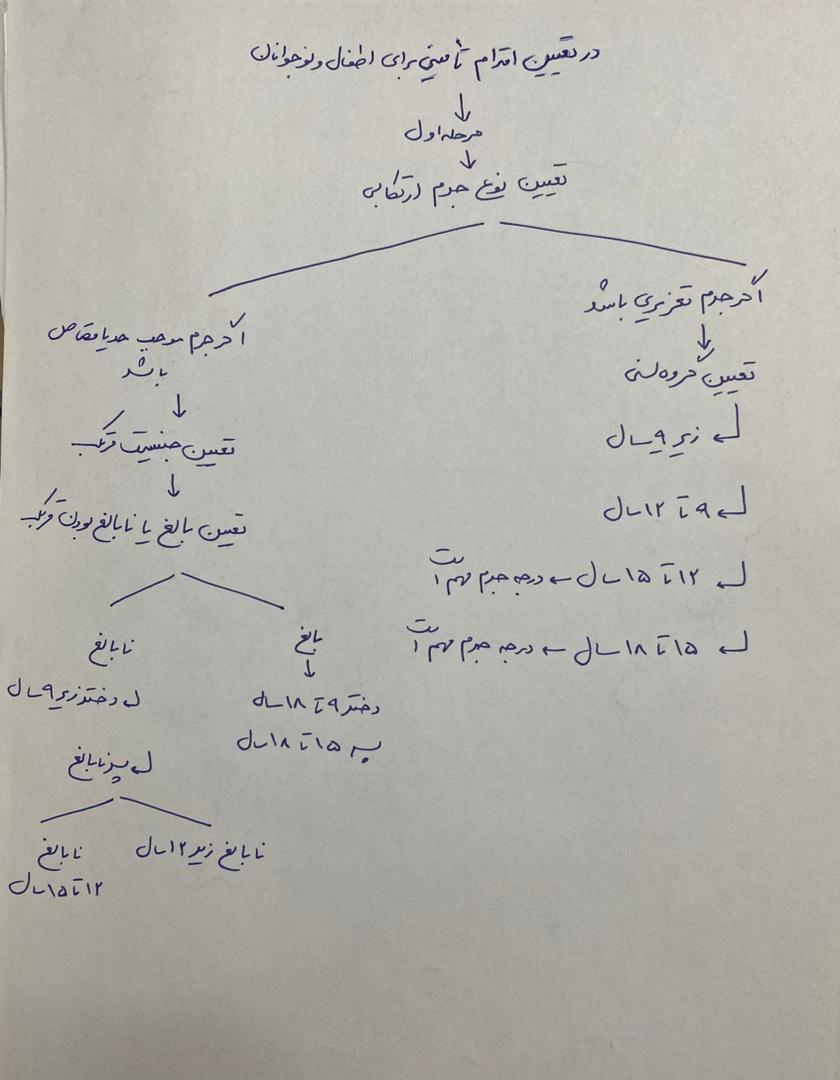 در تعیین اقدام تأمینی برای اطفال و نوجوانان
↓
مرحله اول
↓
تعیین نوع جرم ارتکابی
اگر جرم تعزیری باشد
↓
تعیین گروه سنی
↲ زیر ۹ سال
↲ ۹ تا ۱۲ سال
↲ ۱۲ تا ۱۵ سال ← درجه جرم مهم است
↲ ۱۵ تا ۱۸ سال ← درجه جرم مهم است
اگر جرم موجب حد یا قصاص
باشد
↓
تعیین جنسیت مرتکب
↓
تعیین بالغ یا نابالغ بودن مرتکب
بالغ
↓
دختر ۹ تا ۱۸ سال
پسر ۱۵ تا ۱۸ سال
نابالغ
↲ دختر زیر ۹ سال
↲ پسر نابالغ
نابالغ زیر ۱۲ سال
نابالغ
۱۲ تا ۱۵ سال